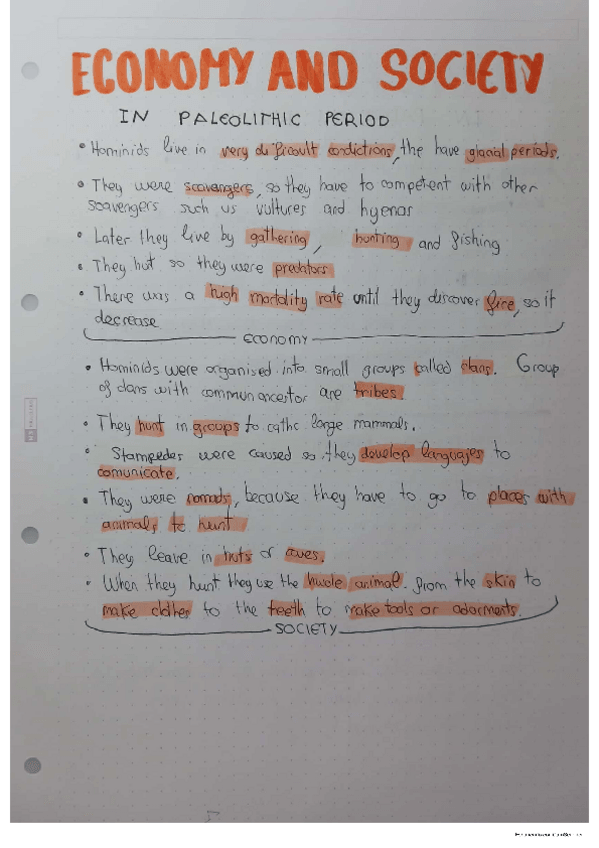 ECONOMY AND SOCIETY
IN PALEOLITHIC PERIOD
• Hominids live in very dificoult condictions, the have glacial periods.
• They were scavangers, so they have to competent with other
scavengers such us vultures and hyenas
• Later they live by gathering, hunting and fishing
• They hut so they were predators
• There was a high mortality rate until they discover fire, so it
decrease
ECONOMY
• Hominids were organised into small groups called clans. Group
of clans with commun ancestor are tribes.
• They hunt in groups to cathc large mammals.
• Stampedes were caused so they develop languajes to
comunicate.
• They were nomads, because they have to go to places with
animals to hunt
• They leave in huts or caves.
• When they hunt they use the hwole animal. from the skin to
make clothes to the teeth to make tools or adorments.
SOCIETY